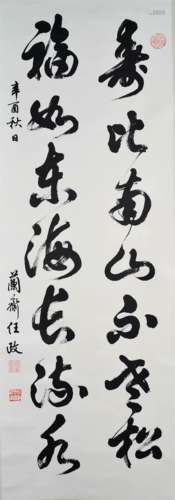 寿比南山不老松
福如东海长流水
辛酉秋日
蘭齋任政